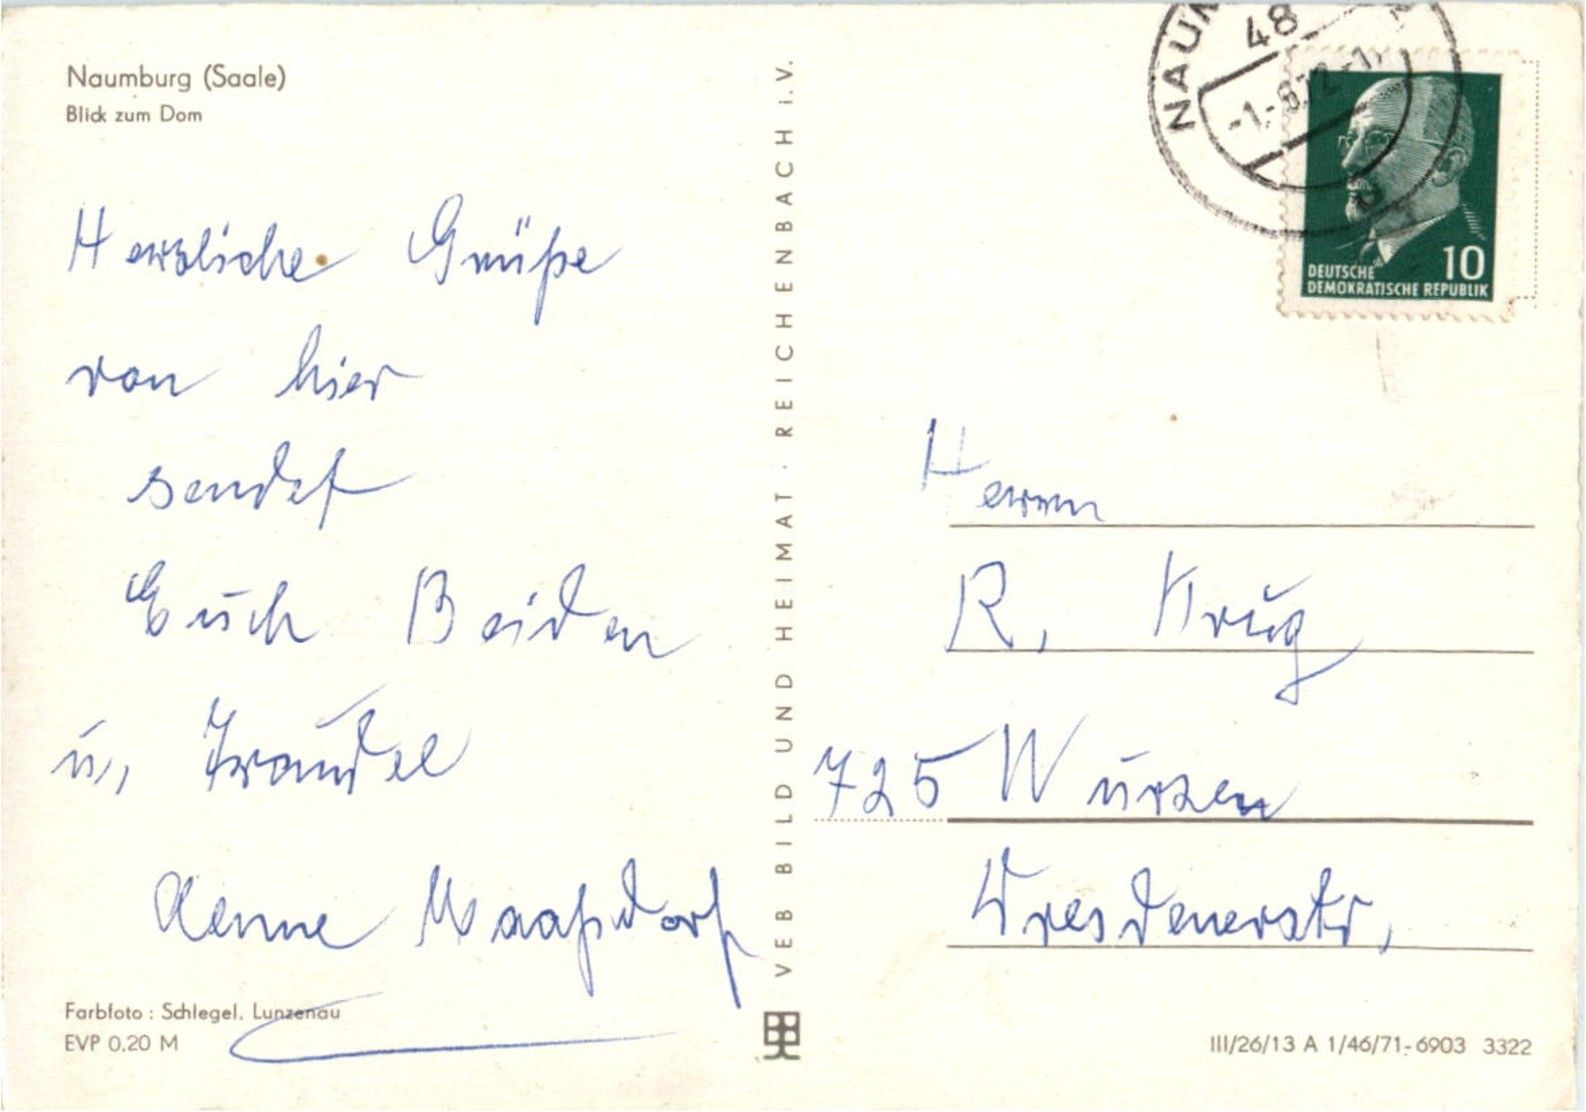 Naumburg (Saale)
Blick zum Dom
Herzliche Grüße
von hier
sendet
Euch Beiden
u, Traudel
Aenne Maaßdorf
Farbfoto: Schlegel, Lunzenau
EVP 0,20 M
VEB BILD UND HEIMAT · REICHENBACH i.V.
NAUM
48
-1.-8.72-1
DEUTSCHE
DEMOKRATISCHE REPUBLIK
10
Herrn
R. Krug
725 Wurzen
Dresdenerstr,
III/26/13 A 1/46/71-6903 3322